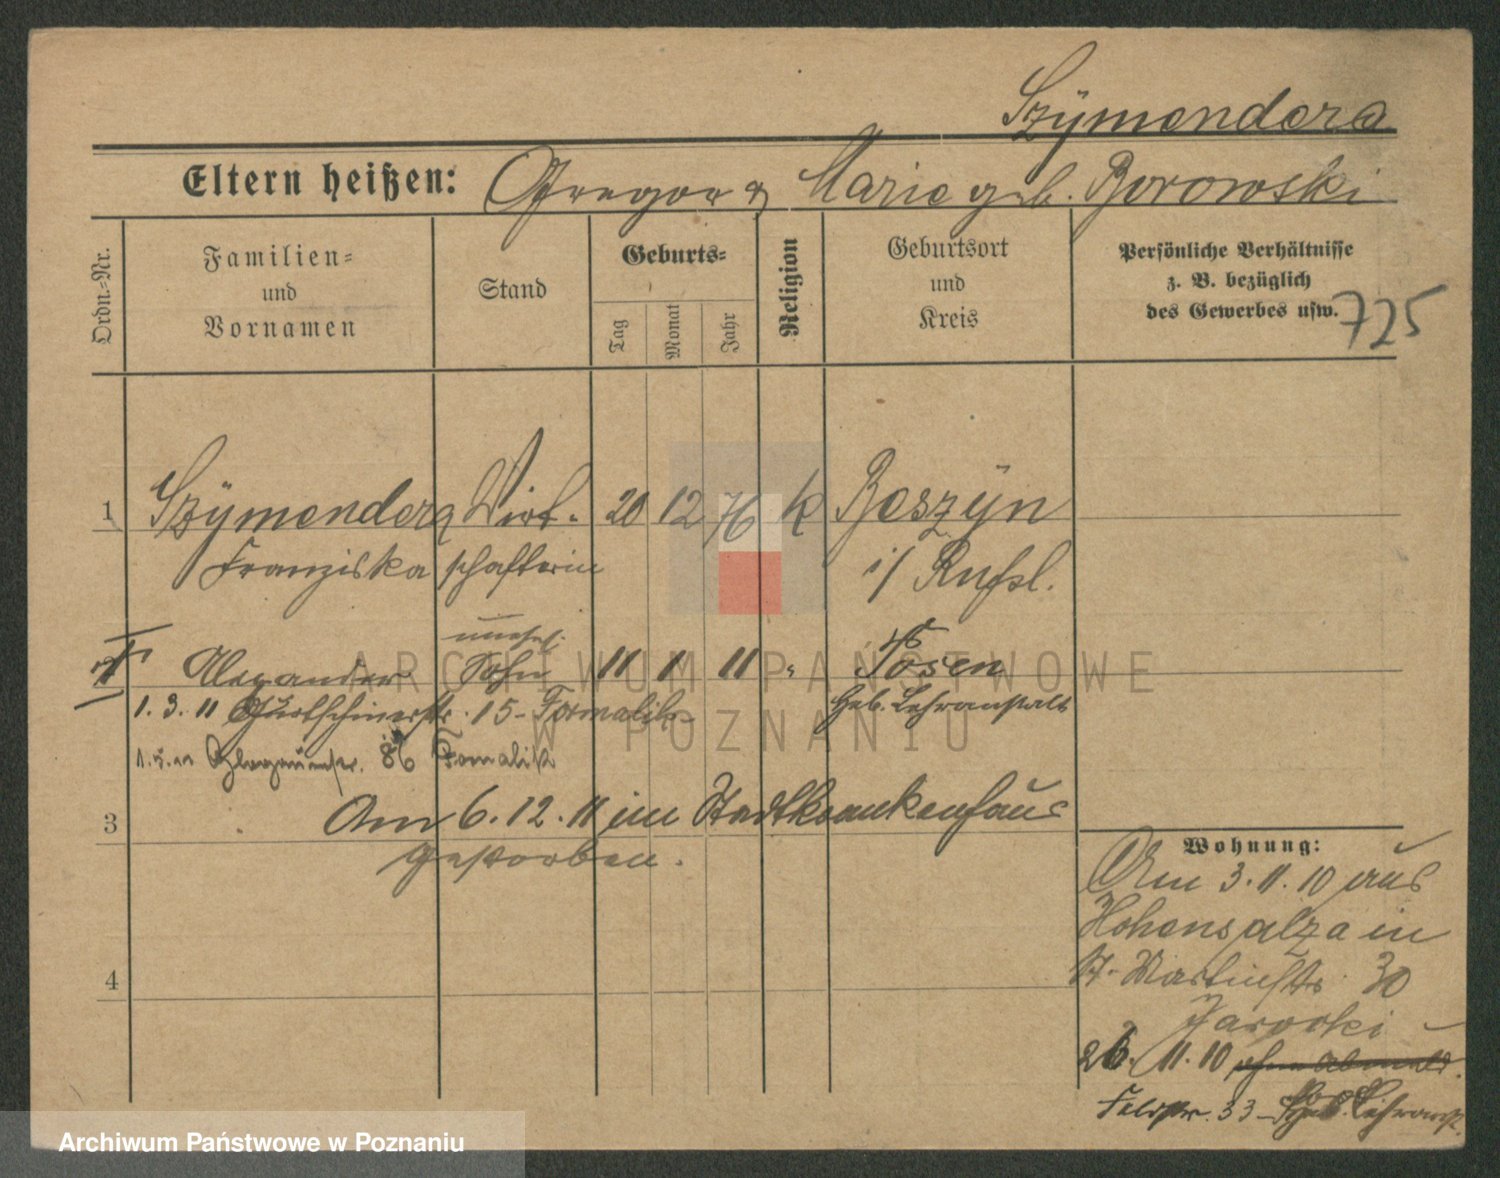 Szÿmendera
Eltern heißen: Gregor & Marie geb. Borowski
Ordn.-Nr.
Familien-
und
Vornamen
Stand
Geburts-
Tag
Monat
Jahr
Religion
Geburtsort
und
Kreis
Persönliche Verhältnisse
z. B. bezüglich
des Gewerbes usw.
725
1 Szÿmendera Wirt- 20 12 76 k Boszÿn
Franziska schafterin i/ Rußl.
unehel.
2 Alexander Sohn 11 1 11 " Posen
1. 3. 11 15 - Formalik Heb. Lehranstalt
1.5.11 86 Fomalik
3 Am 6. 12. 11 im Stadtkrankenhaus
gestorben.
4
Wohnung:
Am 3. 11. 10 aus
Hohensalza in
St. Martinstr. 30
Jarocki
26. 11. 10 ohne Abmeld.
Feldstr. 33 - Heb. Lehranst.
ARCHIWUM PAŃSTWOWE
W POZNANIU
Archiwum Państwowe w Poznaniu